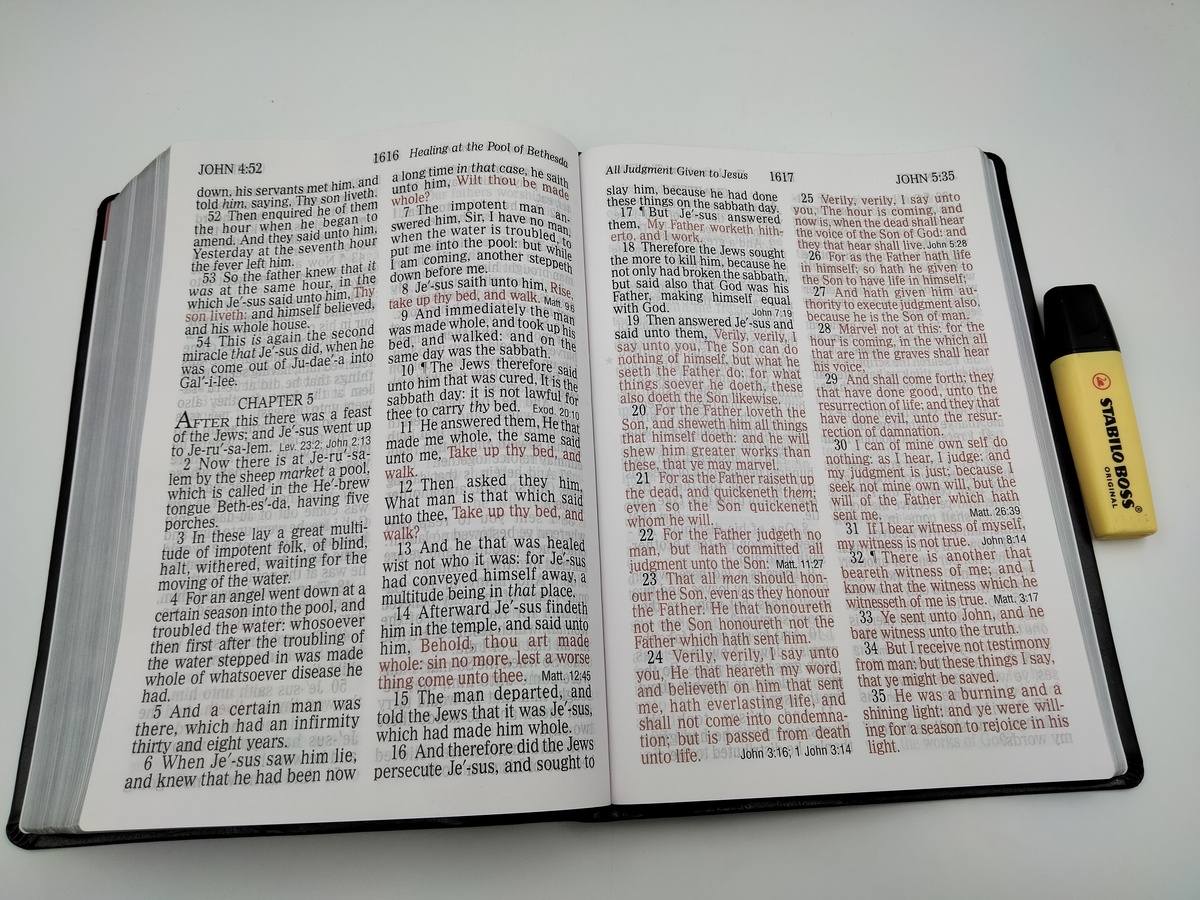 JOHN 4:52
1616 Healing at the Pool of Bethesda
down, his servants met him, and
told him, saying, Thy son liveth.
52 Then enquired he of them
the hour when he began to
amend. And they said unto him,
Yesterday at the seventh hour
the fever left him.
53 So the father knew that it
was at the same hour, in the
which Je′-sus said unto him, Thy
son liveth: and himself believed,
and his whole house.
54 This is again the second
miracle that Je′-sus did, when he
was come out of Ju-dae′-a into
Gal′-i-lee.
CHAPTER 5
AFTER this there was a feast
of the Jews; and Je′-sus went up
to Je-ru′-sa-lem. Lev. 23:2; John 2:13
2 Now there is at Je-ru′-sa-
lem by the sheep market a pool,
which is called in the He′-brew
tongue Beth-es′-da, having five
porches.
3 In these lay a great multi-
tude of impotent folk, of blind,
halt, withered, waiting for the
moving of the water.
4 For an angel went down at a
certain season into the pool, and
troubled the water: whosoever
then first after the troubling of
the water stepped in was made
whole of whatsoever disease he
had.
5 And a certain man was
there, which had an infirmity
thirty and eight years.
6 When Je′-sus saw him lie,
and knew that he had been now
a long time in that case, he saith
unto him, Wilt thou be made
whole?
7 The impotent man an-
swered him, Sir, I have no man,
when the water is troubled, to
put me into the pool: but while
I am coming, another steppeth
down before me.
8 Je′-sus saith unto him, Rise,
take up thy bed, and walk. Matt. 9:6
9 And immediately the man
was made whole, and took up his
bed, and walked: and on the
same day was the sabbath.
10 ¶ The Jews therefore said
unto him that was cured, It is the
sabbath day: it is not lawful for
thee to carry thy bed. Exod. 20:10
11 He answered them, He that
made me whole, the same said
unto me, Take up thy bed, and
walk.
12 Then asked they him,
What man is that which said
unto thee, Take up thy bed, and
walk?
13 And he that was healed
wist not who it was: for Je′-sus
had conveyed himself away, a
multitude being in that place.
14 Afterward Je′-sus findeth
him in the temple, and said unto
him, Behold, thou art made
whole: sin no more, lest a worse
thing come unto thee. Matt. 12:45
15 The man departed, and
told the Jews that it was Je′-sus,
which had made him whole.
16 And therefore did the Jews
persecute Je′-sus, and sought to
All Judgment Given to Jesus 1617
JOHN 5:35
slay him, because he had done
these things on the sabbath day.
17 ¶ But Je′-sus answered
them, My Father worketh hith-
erto, and I work.
18 Therefore the Jews sought
the more to kill him, because he
not only had broken the sabbath,
but said also that God was his
Father, making himself equal
with God. John 7:19
19 Then answered Je′-sus and
said unto them, Verily, verily, I
say unto you, The Son can do
nothing of himself, but what he
seeth the Father do: for what
things soever he doeth, these
also doeth the Son likewise.
20 For the Father loveth the
Son, and sheweth him all things
that himself doeth: and he will
shew him greater works than
these, that ye may marvel.
21 For as the Father raiseth up
the dead, and quickeneth them;
even so the Son quickeneth
whom he will.
22 For the Father judgeth no
man, but hath committed all
judgment unto the Son: Matt. 11:27
23 That all men should hon-
our the Son, even as they honour
the Father. He that honoureth
not the Son honoureth not the
Father which hath sent him.
24 Verily, verily, I say unto
you, He that heareth my word,
and believeth on him that sent
me, hath everlasting life, and
shall not come into condemna-
tion; but is passed from death
unto life. John 3:16; 1 John 3:14
25 Verily, verily, I say unto
you, The hour is coming, and
now is, when the dead shall hear
the voice of the Son of God: and
they that hear shall live. John 5:28
26 For as the Father hath life
in himself; so hath he given to
the Son to have life in himself;
27 And hath given him au-
thority to execute judgment also,
because he is the Son of man.
28 Marvel not at this: for the
hour is coming, in the which all
that are in the graves shall hear
his voice,
29 And shall come forth; they
that have done good, unto the
resurrection of life; and they that
have done evil, unto the resur-
rection of damnation.
30 I can of mine own self do
nothing: as I hear, I judge: and
my judgment is just; because I
seek not mine own will, but the
will of the Father which hath
sent me. Matt. 26:39
31 If I bear witness of myself,
my witness is not true. John 8:14
32 ¶ There is another that
beareth witness of me; and I
know that the witness which he
witnesseth of me is true. Matt. 3:17
33 Ye sent unto John, and he
bare witness unto the truth.
34 But I receive not testimony
from man: but these things I say,
that ye might be saved.
35 He was a burning and a
shining light: and ye were will-
ing for a season to rejoice in his
light.
STABILO BOSS®
ORIGINAL